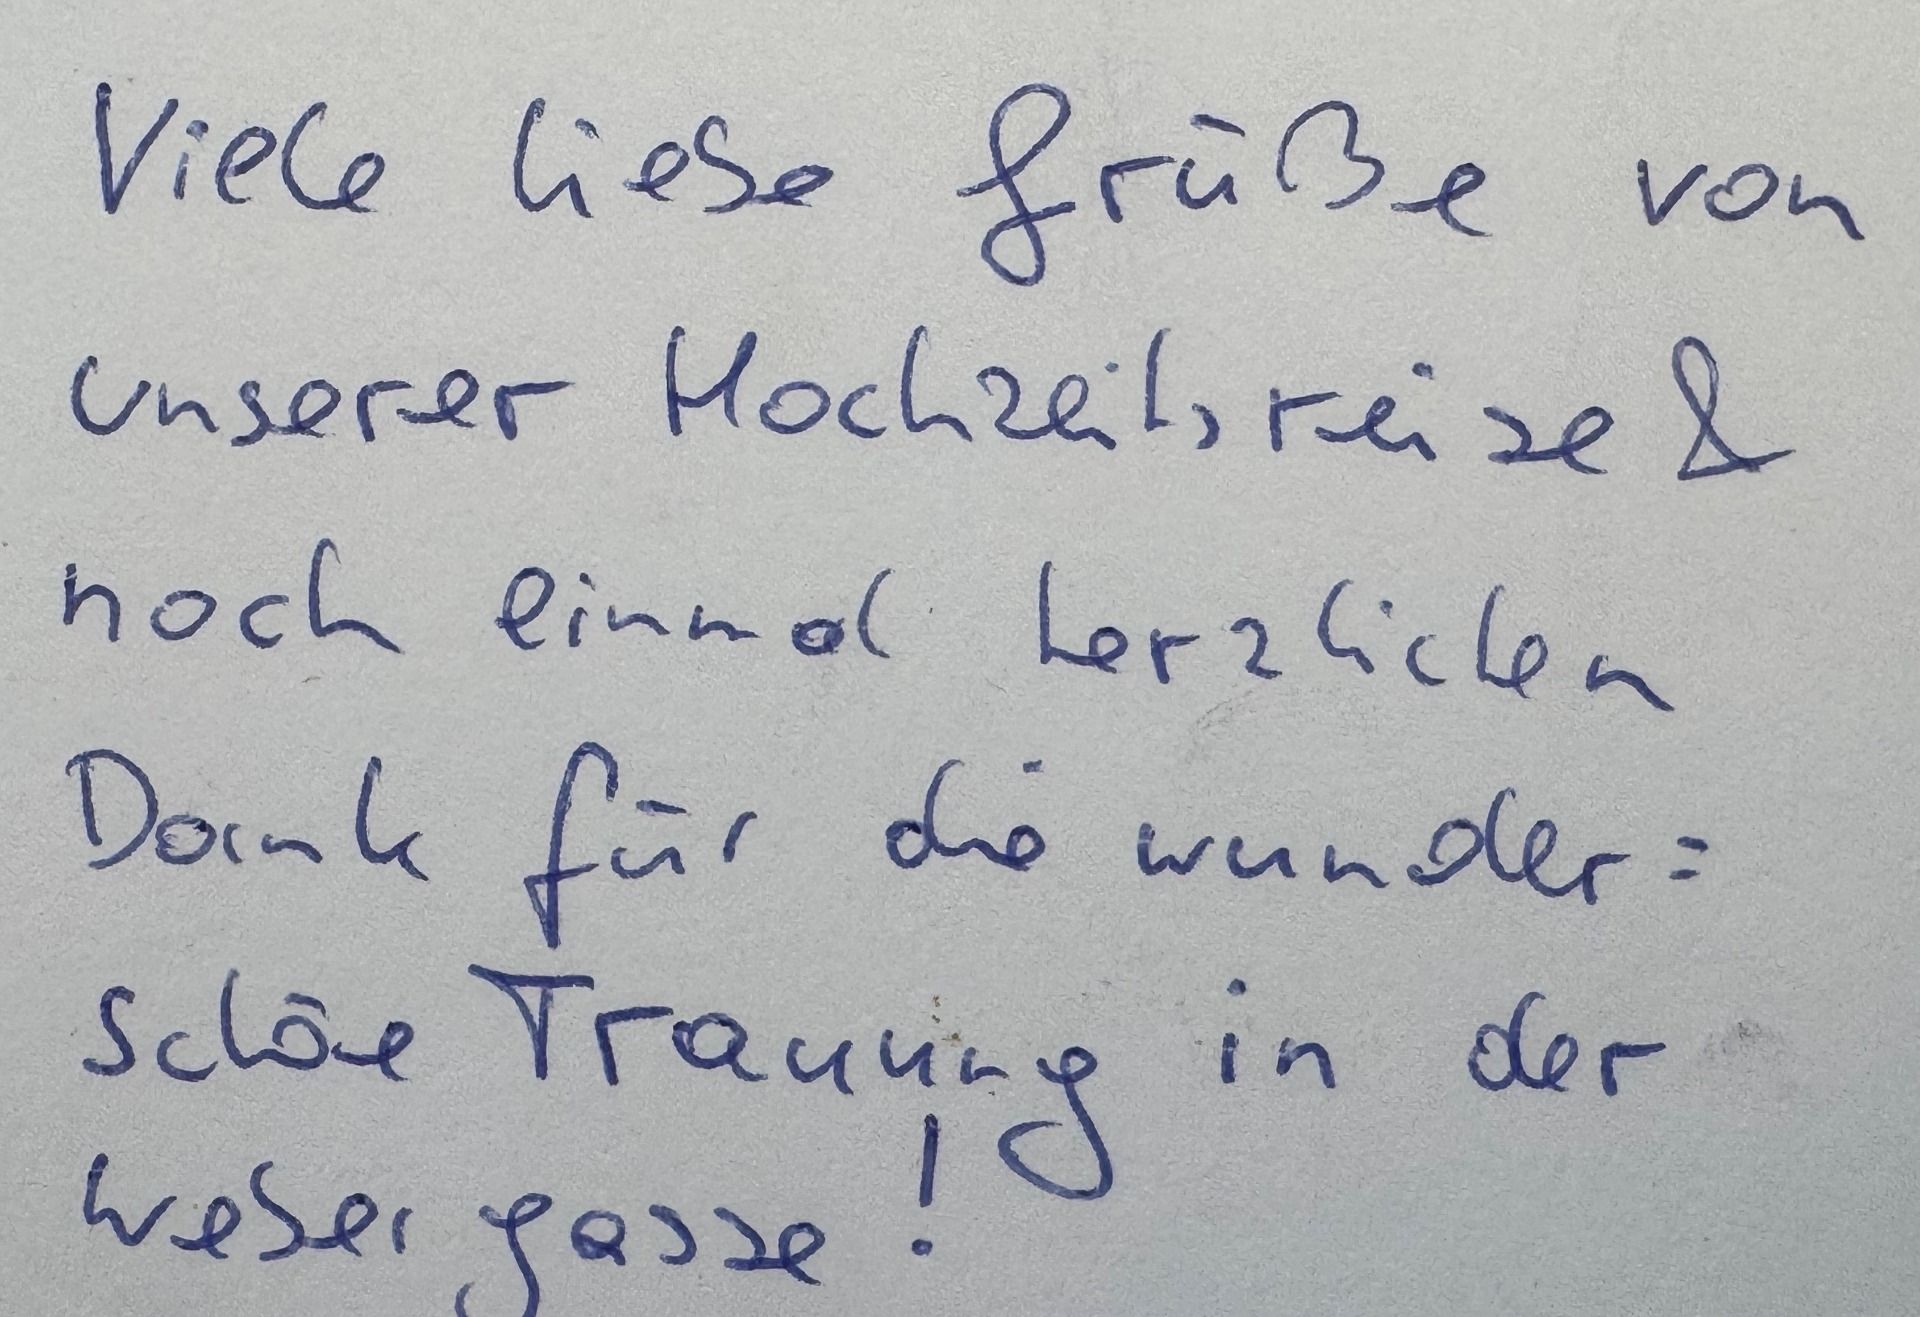 Viele liebe Grüße von
unserer Hochzeitsreise &
noch einmal herzlichen
Dank für die wunder=
schöne Trauung in der
Webergasse!